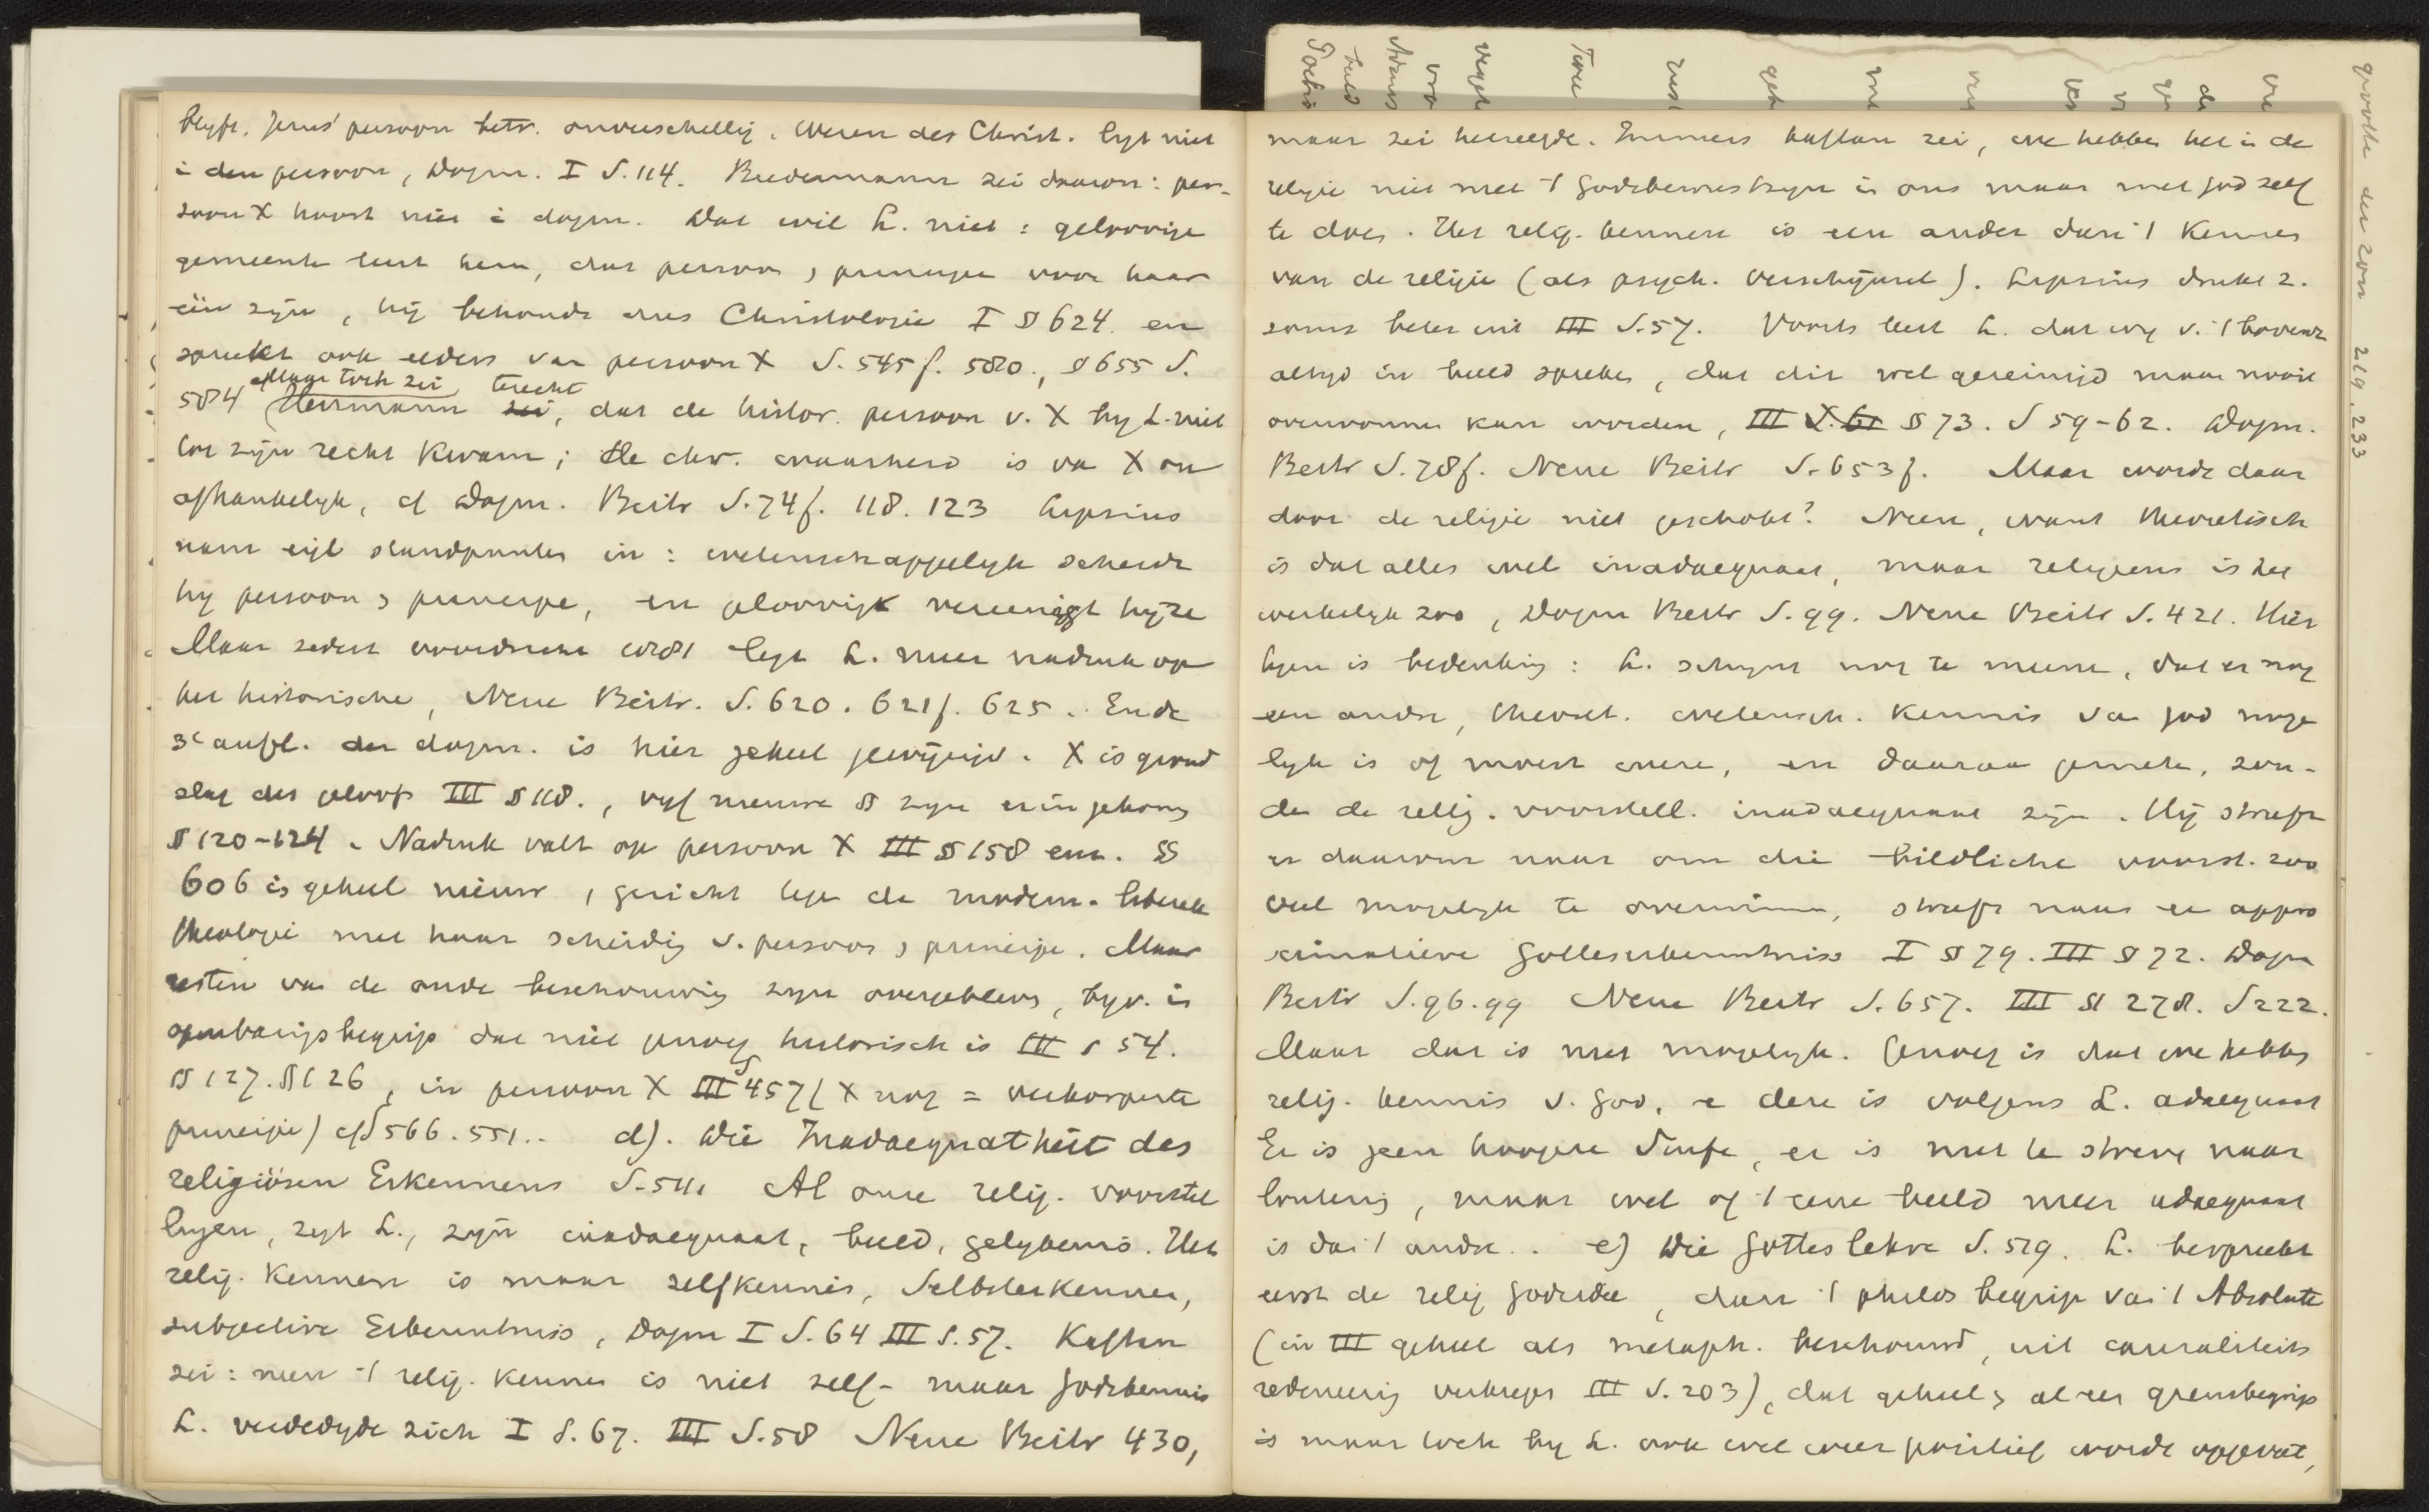 blyft. Jezus' persoon betr. onverschillig. Wezen des Christ. ligt niet
in den persoon, Dogm. I S. 114. Biedermann zei daarom: per-
soon X hoort niet in dogm. Dat wil L. niet: geloovige
gemeente leert hem, dat persoon & principe voor haar
één zijn, hij behoudt dus Christologie I § 624. en
spreekt ook elders van persoon X S. 545 f. 580., § 655 S.
584 Maar toch zei Herrmann terecht, dat de histor. persoon v. X by L. niet
tot zijn recht kwam; de chr. waarheid is van X on
afhankelyk, cf Dogm. Beitr S. 74 f. 118. 123 Lipsius
nam twee standpunten in: wetenschappelyk scheidt
hy persoon & principe, en geloovig vereenigt hy ze
Maar sedert voordracht 1881 legt L. meer nadruk op
het historische, Neue Beitr. S. 620. 621 f. 625. En de
3e aufl. der dogm. is hier geheel gewijzigd. X is grond
slag des geloofs III § 118., vyf nieuwe § zyn erin gekomen
§ 120-124. Nadruk valt op persoon X III § 158 enz. §
606 is geheel nieuw, gericht tegen de modern-liberale
theologie met haar scheiding v. persoon & principe. Maar
resten van de oude beschouwing zyn overgebleven, byv. in
openbaringsbegrip dat niet genoeg historisch is III § 54.
§ 127. § 126, in persoon X III S 457 (X nog = verkorperte
principe) cf S 566. 551.. d). Die Inadaequatheit des
religiösen Erkennens S. 511. Al onze relig. voorstel
lingen, zegt L., zijn inadaequaat, beeld, gelykenis. Het
relig. Kennen is maar zelfkennis, Selbsterkennen,
subjective Erkenntniss, Dogm I S. 64 III S. 57. Kaftan
zei: neen 't relig. kennen is niet zelf- maar Godskennis
L. verdedigde zich I S. 67. III S. 58 Neue Beitr 430,
maar zei hetzelfde. Immers Kaftan zei, we hebben het in de
religie niet met 't Godsbewustzyn in ons maar met God zelf
te doen. Het relig. kennen is een ander dan 't Kennen
van de religie (als psych. verschijnsel). Lipsius drukt z.
soms beter uit III S. 57. Voorts leert L. dat wy v. 't bovenz
altyd in beeld spreken, dat dit wel gereinigd maar nooit
overwonnen kan worden, III § 73. S 59-62. Dogm.
Beitr S. 78 f. Neue Beitr S. 653 f. Maar wordt daar
door de religie niet geschokt? Neen, want theoretisch
is dat alles wel inadaequaat, maar religieus is het
werkelyk zoo, Dogm Beitr S. 99. Neue Beitr S. 421. Hier
tegen is bedenking: L. schynt nog te meenen, dat er nog
een andre, theoret. wetensch. kennis van God moge
lyk is of moest wezen, en daaraan gemeten, zou-
den de relig. voorstell. inadaequaat zijn. Hij streeft
er daarom naar om die bildliche voorst. zoo
veel mogelyk te overwinnen, streeft naar een appro
ximatieve Gotteserkenntniss I § 79. III § 72. Dogm
Beitr S. 96. 99 Neue Beitr S. 657. III § 278. S 222.
Maar dat is niet mogelyk. Genoeg is dat we hebben
relig. kennis v. God, en deze is volgens L. adaequaat
Er is geen hoogere Stufe, er is niet te streven naar
loutering, maar wel of 't eene beeld meer adaequaat
is dan 't andre.. e) Die Gotteslehre S. 529. L. bespreekt
eerst de relig Godsidee, dan 't philos begrip van 't Absolute
(in III geheel als metaph. beschouwd, uit causaliteits
redeneering verkregen III S. 203), dat geheel & al een grensbegrip
is maar toch by L. ook wel weer positief wordt opgevat,
grootte den zoon 219, 233